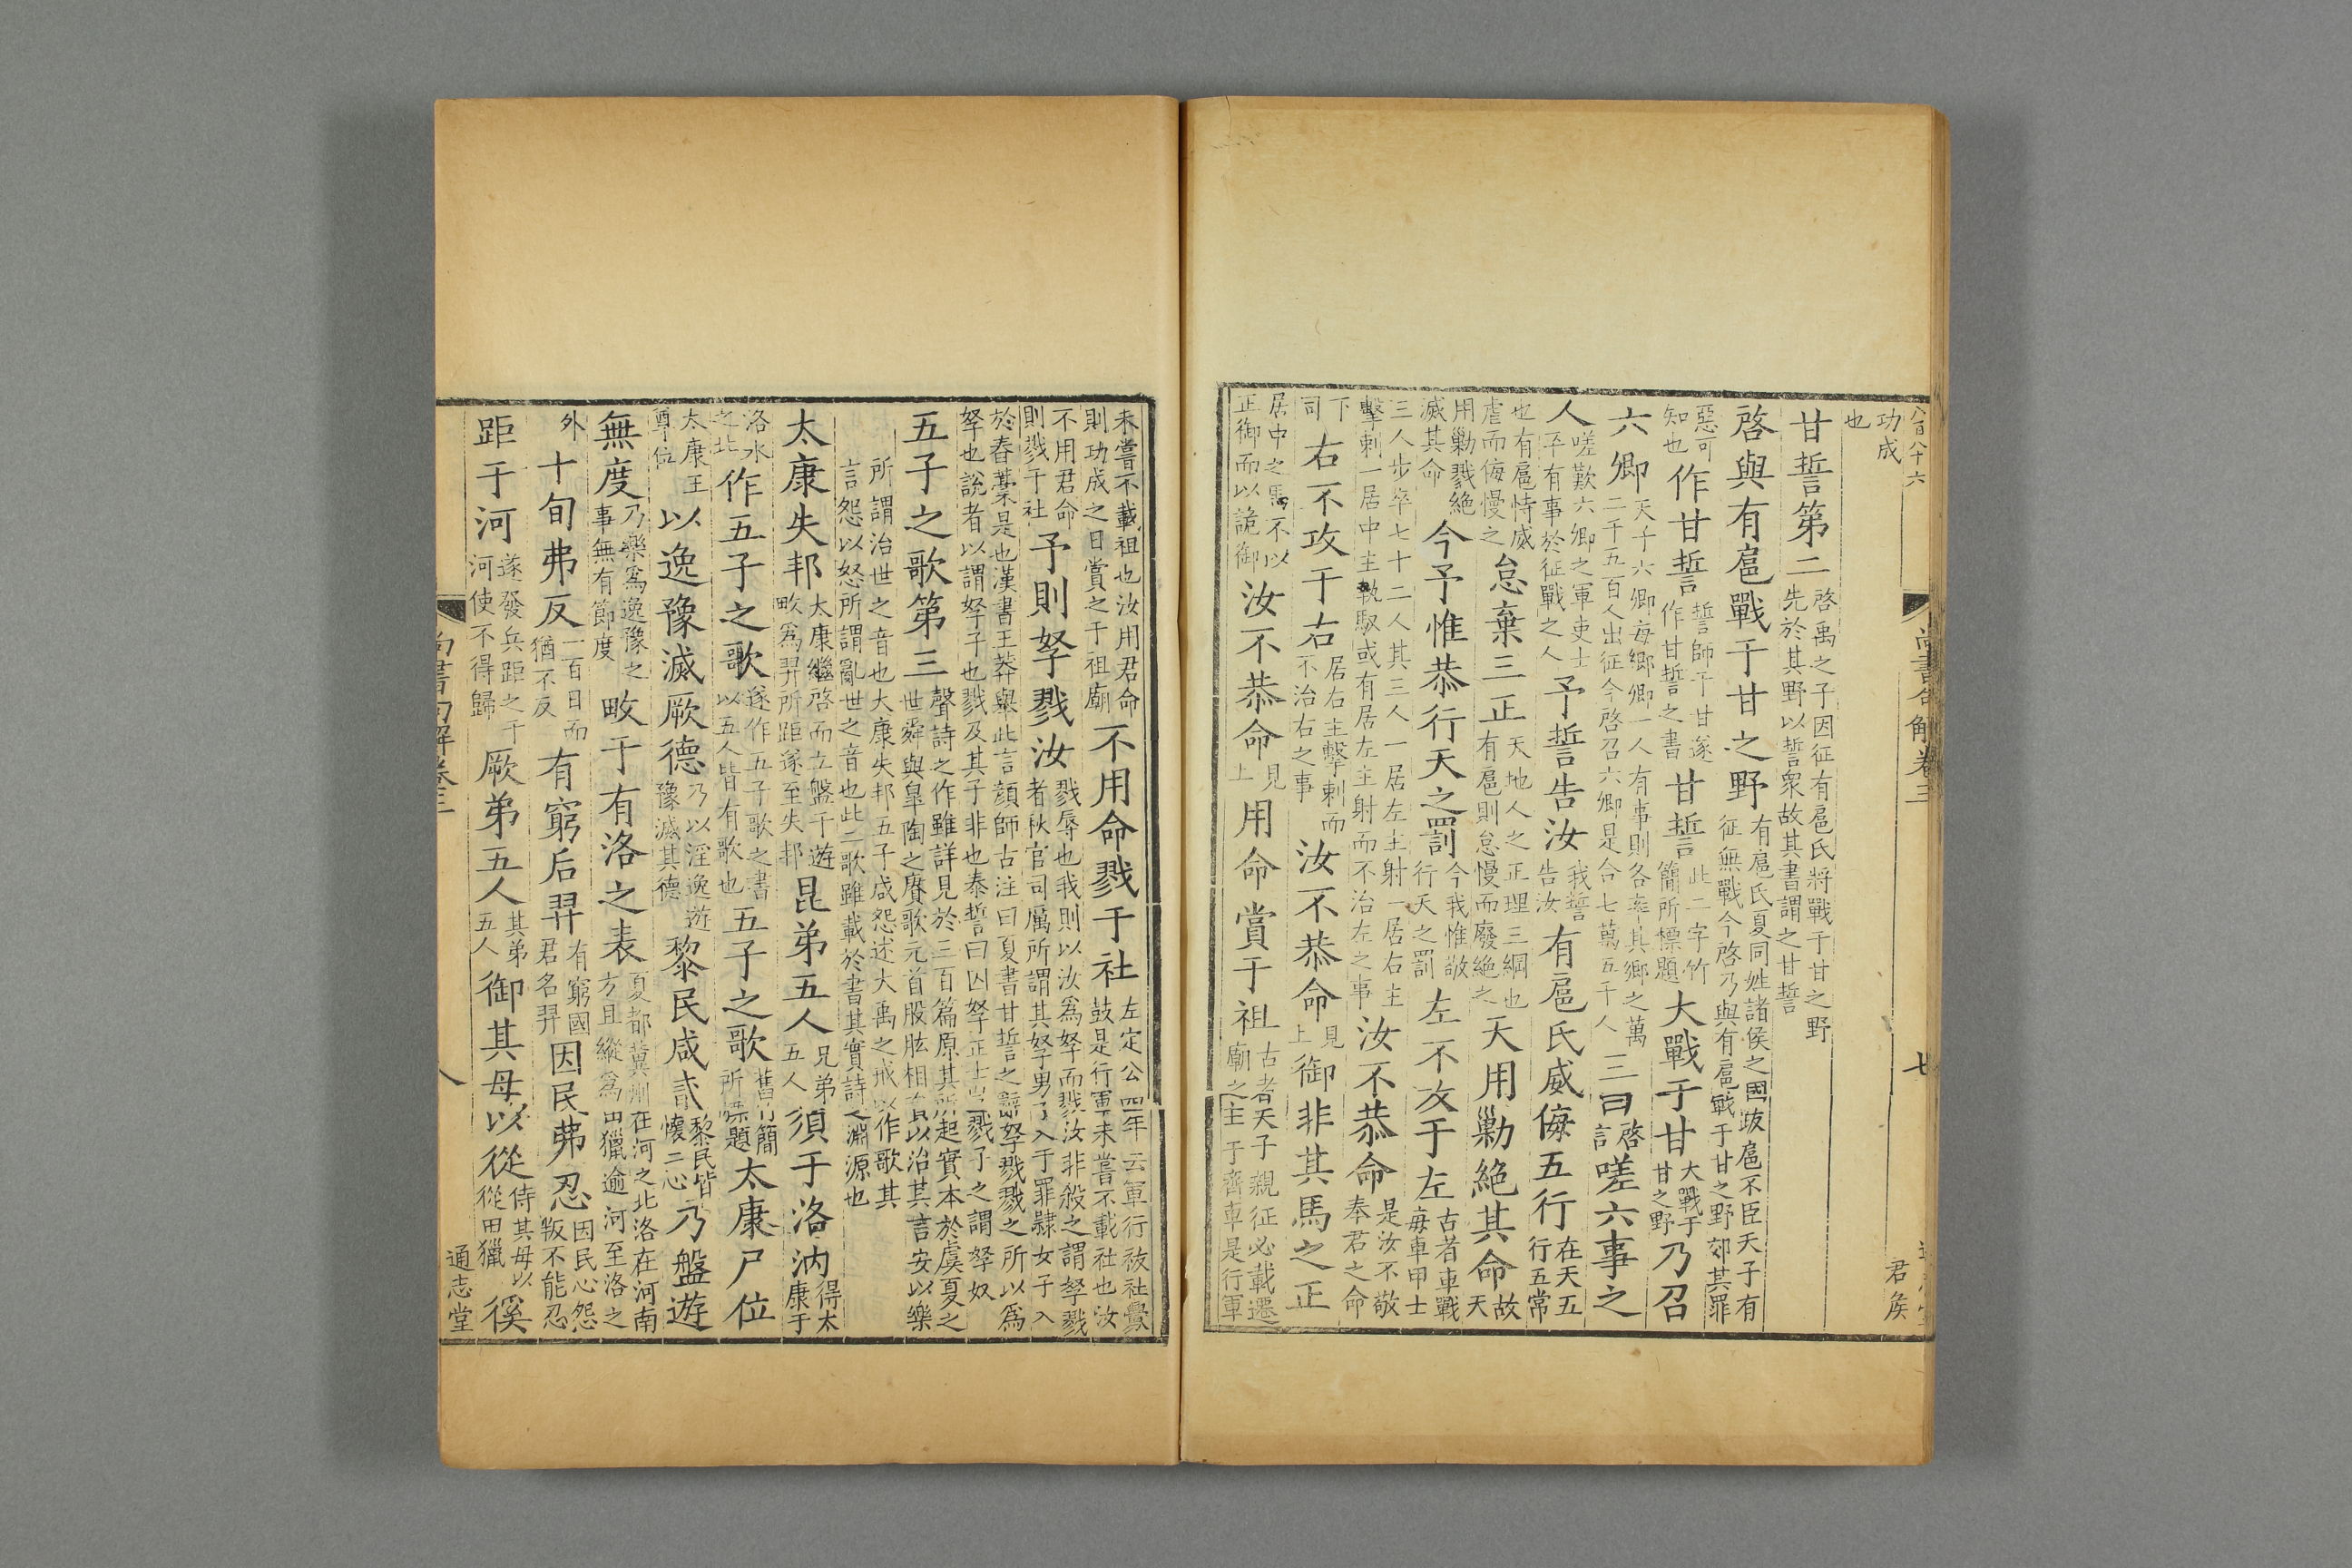 八百八十六 尚書句解卷三 七 君矦
功成也
甘誓第二啓禹之子因征有扈氏將戰于甘之野先於其野以誓衆故其書謂之甘誓
啓與有扈戰于甘之野有扈氏夏同姓諸侯之國跋扈不臣天子有征無戰今啓乃與有扈戰于甘之野郊其罪
惡可知也作甘誓誓師于甘遂作甘誓之書甘誓此二字竹簡所標題大戰于甘大戰于甘之野乃召
六卿天子六卿每鄉卿一人有事則各率其鄉之萬二千五百人出征今啓召六卿是合七萬五千人王曰啓言嗟六事之
人嗟歎六卿之軍吏士卒有事於征戰之人予誓告汝我誓告汝有扈氏威侮五行在天五行五常
也有扈恃威虐而侮慢之怠棄三正天地人之正理三綱也有扈則怠慢而廢絶之天用勦絶其命故天
用勦戮絶滅其命今予惟恭行天之罰今我惟敬行天之罰左不攻于左古者車戰每車甲士
三人步卒七十二人其三人一居左主射一居右主擊刺一居中主執馭或有居左主射而不治左之事汝不恭命是汝不敬奉君之命
下司右不攻于右居右主擊刺而不治右之事汝不恭命見上御非其馬之正
居中之馬不以正御而以詭御汝不恭命見上用命賞于祖古者天子親征必載遷廟之主于齊車是行軍
未嘗不載祖也汝用君命則功成之日賞之于祖廟不用命戮于社左定公四年云軍行祓社釁鼓是行軍未嘗不載社也汝
不用君命則戮于社予則孥戮汝戮辱也我則以汝爲孥而戮汝非殺之謂孥戮者秋官司厲所謂其孥男子入于罪隸女子入
於舂藁是也漢書王莽舉此言顔師古注曰夏書甘誓之辭孥戮戮之所以爲孥也說者以謂孥子也戮及其子非也泰誓曰囚孥正士豈戮子之謂孥奴
五子之歌第三聲詩之作雖詳見於三百篇原其所起實本於虞夏之世舜與臯陶之賡歌元首股肱相責以治其言安以樂
所謂治世之音也大康失邦五子咸怨述大禹之戒以作歌其言怨以怒所謂亂世之音也此二歌雖載於書其實詩之淵源也
太康失邦太康繼啓而立盤于遊畋爲羿所距遂至失邦昆弟五人兄弟五人須于洛汭得太康于
洛水之北作五子之歌遂作五子歌之書以五人皆有歌也五子之歌舊竹簡所標題太康尸位
太康主尊位以逸豫滅厥德乃以淫逸遊豫滅其德黎民咸貳黎民皆懷二心乃盤遊
無度乃樂爲逸豫之事無有節度畋于有洛之表夏都冀州在河之北洛在河南方且縱爲田獵逾河至洛之
外十旬弗反一百日而猶不反有窮后羿有窮國君名羿因民弗忍因民心怨叛不能忍
距于河遂發兵距之于河使不得歸厥弟五人其弟五人御其母以從侍其母以從田獵徯
尚書句解卷三 八 通志堂